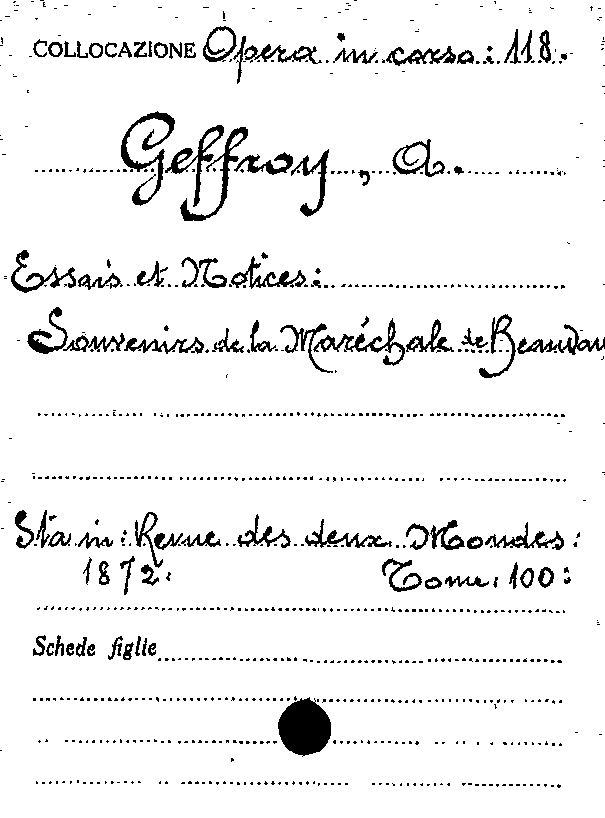 COLLOCAZIONE Opera in corso: 118.
Geffroy, A.
Essais et Notices:
Souvenirs de la Maréchale de Beauvau
Sta in: Revue des deux Mondes:
1872. Tome. 100:
Schede figlie